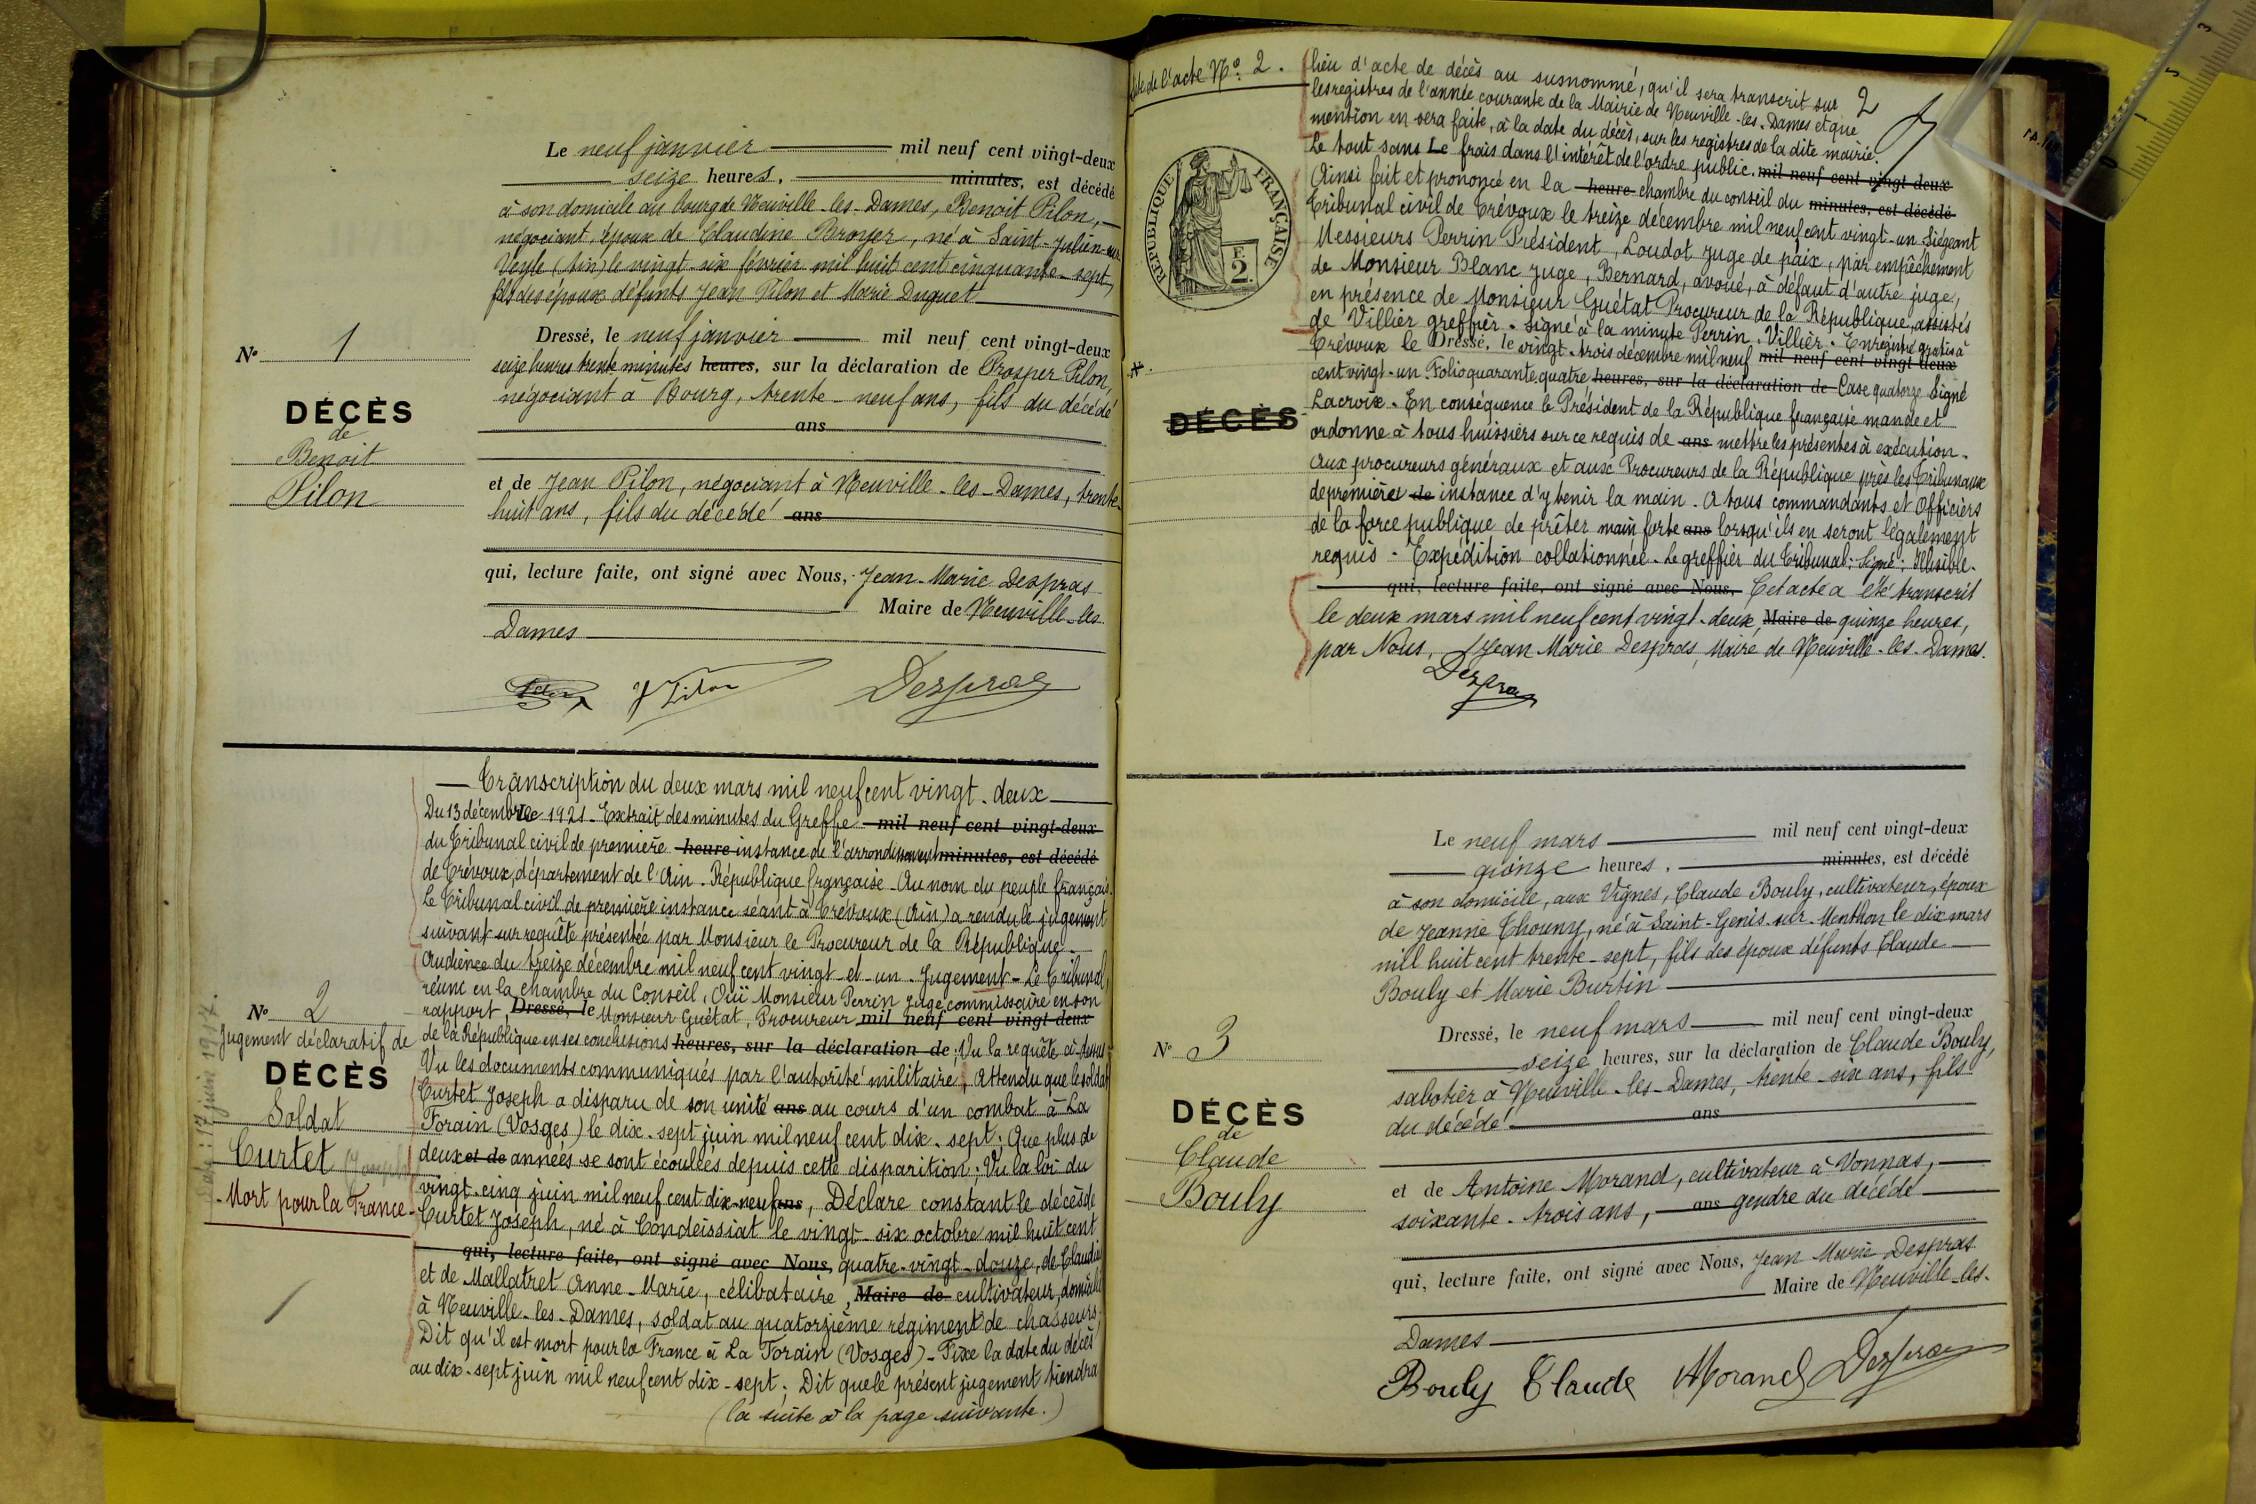 Le neuf janvier mil neuf cent vingt-deux
seize heures, minutes, est décédé
à son domicile au bourg de Neuville-les-Dames, Benoit Pilon,
négociant, époux de Claudine Broyer, né à Saint-Julien-sur-
Veyle (Ain) le vingt-six février mil huit cent cinquante-sept,
fils des époux défunts Jean Pilon et Marie Duguet
Dressé, le neuf janvier mil neuf cent vingt-deux
seize heures trente minutes heures, sur la déclaration de Prosper Pilon,
négociant à Bourg, trente-neuf ans, fils du décédé
ans
et de Jean Pilon, négociant à Neuville-les-Dames, trente-
huit ans, fils du décédé ans
qui, lecture faite, ont signé avec Nous, Jean-Marie Despras
Maire de Neuville-les-
Dames
J Pilon Despras
N° 1
DÉCÈS
de
Benoit
Pilon
Transcription du deux mars mil neuf cent vingt-deux
Du 13 décembre 1921 - Extrait des minutes du Greffe mil neuf cent vingt-deux
du Tribunal civil de première heure instance de l'arrondissement minutes, est décédé
de Trévoux, département de l'Ain. République française - Au nom du peuple français.
Le Tribunal civil de première instance séant à Trévoux (Ain) a rendu le jugement
suivant sur requête présentée par Monsieur le Procureur de la République -
Audience du treize décembre mil neuf cent vingt-et-un - Jugement - Le Tribunal,
réuni en la chambre du Conseil, Ouï Monsieur Perrin juge commissaire en son
rapport, Dressé, le Monsieur Guétat, Procureur mil neuf cent vingt-deux
de la République en ses conclusions heures, sur la déclaration de ; Vu la requête ci-dessus
Vu les documents communiqués par l'autorité militaire, Attendu que le soldat
Curtet Joseph a disparu de son unité ans au cours d'un combat à La
Forain (Vosges) le dix-sept juin mil neuf cent dix-sept ; Que plus de
deux et de années se sont écoulées depuis cette disparition ; Vu la loi du
vingt-cinq juin mil neuf cent dix-neuf ans, Déclare constant le décès de
Curtet Joseph, né à Condeissiat le vingt-six octobre mil huit cent
qui, lecture faite, ont signé avec Nous, quatre-vingt-douze, de Claudius
et de Mallatret Anne-Marie, célibataire, Maire de cultivateur, domicilié
à Neuville-les-Dames, soldat au quatorzième régiment de chasseurs,
Dit qu'il est mort pour la France à La Forain (Vosges) - Fixe la date du décès
au dix-sept juin mil neuf cent dix-sept ; Dit que le présent jugement tiendra
(la suite à la page suivante.)
N° 2
Jugement déclaratif de
DÉCÈS
Soldat
Curtet (Joseph)
- Mort pour la France -
17 juin 1917.
Suite de l'acte N° 2.
2
lieu d'acte de décès au susnommé, qu'il sera transcrit sur
les registres de l'année courante de la Mairie de Neuville-les-Dames et que
mention en sera faite, à la date du décès, sur les registres de la dite mairie.
Le tout sans Le frais dans l'intérêt de l'ordre public. mil neuf cent vingt-deux
Ainsi fait et prononcé en la heure chambre du conseil du minutes, est décédé
Tribunal civil de Trévoux le treize décembre mil neuf cent vingt-un Siégeant
Messieurs Perrin Président, Loudot juge de paix, par empêchement
de Monsieur Blanc juge, Bernard, avoué, à défaut d'autre juge,
en présence de Monsieur Guétat Procureur de la République, assistés
de Villier greffier. Signé à la minute Perrin. Villier. Enregistré gratis à
Trévoux le Dressé, le vingt-trois décembre mil neuf mil neuf cent vingt-deux
cent vingt-un. Folio quarante quatre heures, sur la déclaration de Case quatorze Signé
Lacroix. En conséquence le Président de la République française mande et
ordonne à tous huissiers sur ce requis de ans mettre les présentes à exécution.
Aux procureurs généraux et aux Procureurs de la République près les Tribunaux
de première et de instance d'y tenir la main. A tous commandants et Officiers
de la force publique de prêter main forte ans lorsqu'ils en seront légalement
requis. Expédition collationnée. Le greffier du Tribunal : Signé : Illisible.
qui, lecture faite, ont signé avec Nous, Cet acte a été transcrit
le deux mars mil neuf cent vingt-deux, Maire de quinze heures,
par Nous, Jean Marie Despras, Maire de Neuville-les-Dames.
Despras
RÉPUBLIQUE FRANÇAISE
E
2
DÉCÈS
Le neuf mars mil neuf cent vingt-deux
quinze heures, minutes, est décédé
à son domicile, aux Vignes, Claude Bouly, cultivateur, époux
de Jeanne Thouny, né à Saint-Genis-sur-Menthon le dix mars
mil huit cent trente-sept, fils des époux défunts Claude
Bouly et Marie Burtin
Dressé, le neuf mars mil neuf cent vingt-deux
seize heures, sur la déclaration de Claude Bouly,
sabotier à Neuville-les-Dames, trente-six ans, fils
du décédé ans
et de Antoine Morand, cultivateur à Vonnas,
soixante-trois ans, ans gendre du décédé
qui, lecture faite, ont signé avec Nous, Jean Marie Despras
Maire de Neuville-les-
Dames
Bouly Claude Morand Despras
N° 3
DÉCÈS
de
Claude
Bouly